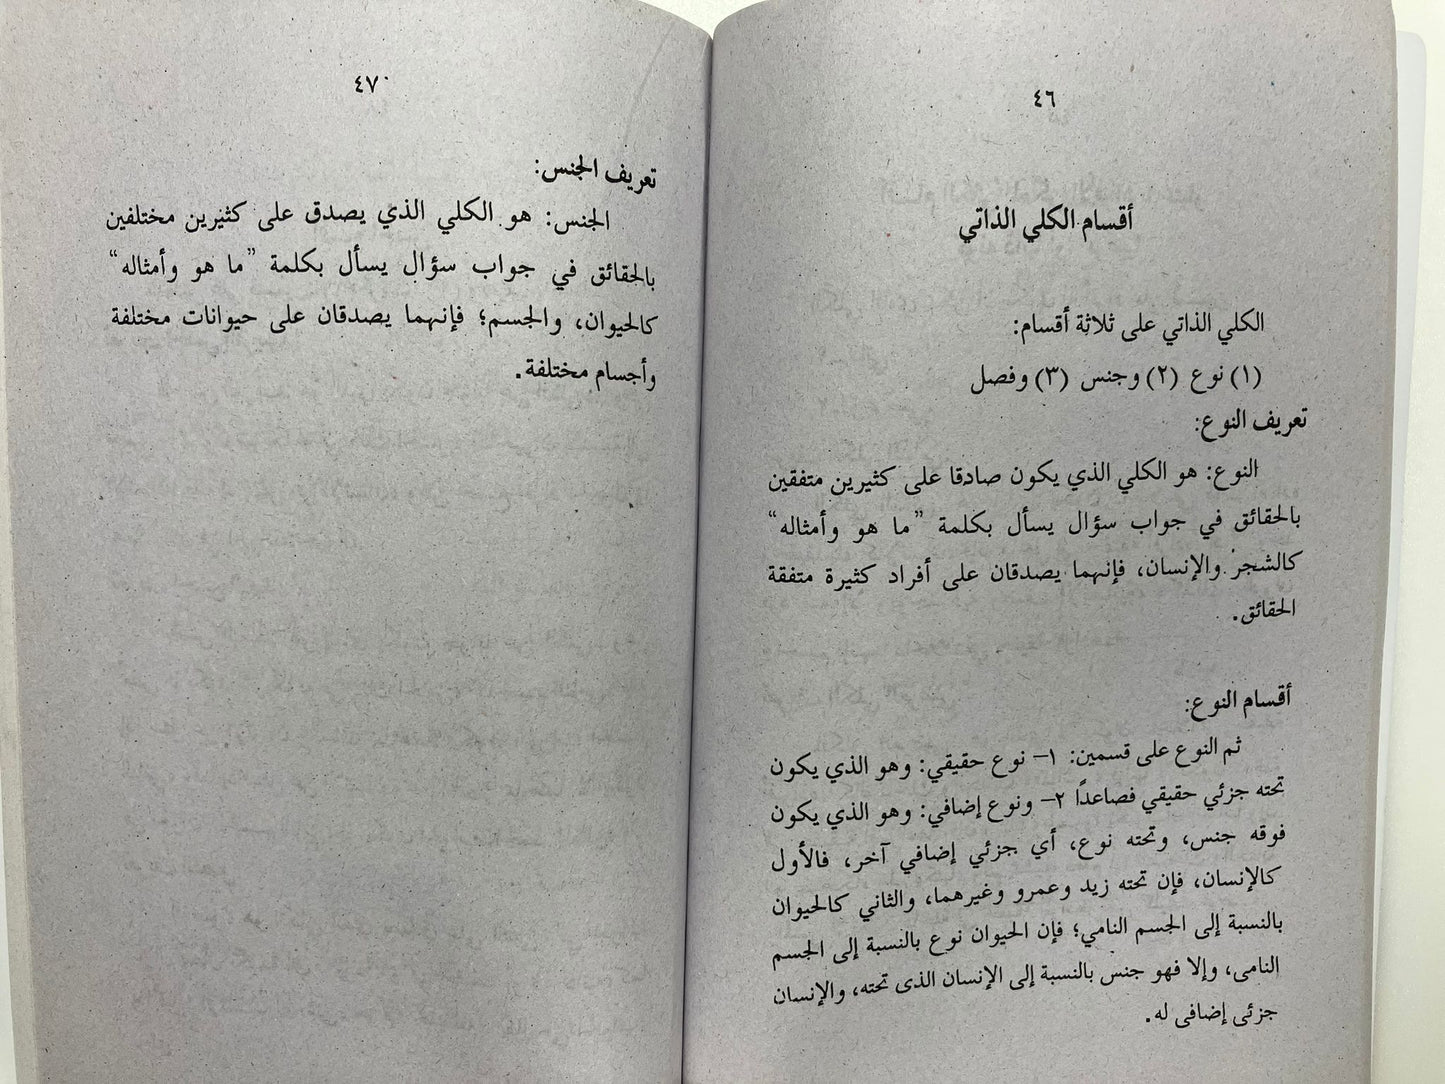 ٤٦
أقسام الكلي الذاتي
الكلي الذاتي على ثلاثة أقسام:
(١) نوع (٢) وجنس (٣) وفصل
تعريف النوع:
النوع: هو الكلي الذي يكون صادقا على كثيرين متفقين
بالحقائق في جواب سؤال يسأل بكلمة ”ما هو وأمثاله“
كالشجر والإنسان، فإنهما يصدقان على أفراد كثيرة متفقة
الحقائق.
أقسام النوع:
ثم النوع على قسمين: ١– نوع حقيقي: وهو الذي يكون
تحته جزئي حقيقي فصاعدًا ٢– ونوع إضافي: وهو الذي يكون
فوقه جنس، وتحته نوع، أي جزئي إضافي آخر، فالأول
كالإنسان، فإن تحته زيد وعمرو وغيرهما، والثاني كالحيوان
بالنسبة إلى الجسم النامي؛ فإن الحيوان نوع بالنسبة إلى الجسم
النامى، وإلا فهو جنس بالنسبة إلى الإنسان الذى تحته، والإنسان
جزئى إضافى له.
٤٧
تعريف الجنس:
الجنس: هو الكلي الذي يصدق على كثيرين مختلفين
بالحقائق في جواب سؤال يسأل بكلمة ”ما هو وأمثاله“
كالحيوان، والجسم؛ فإنهما يصدقان على حيوانات مختلفة
وأجسام مختلفة.